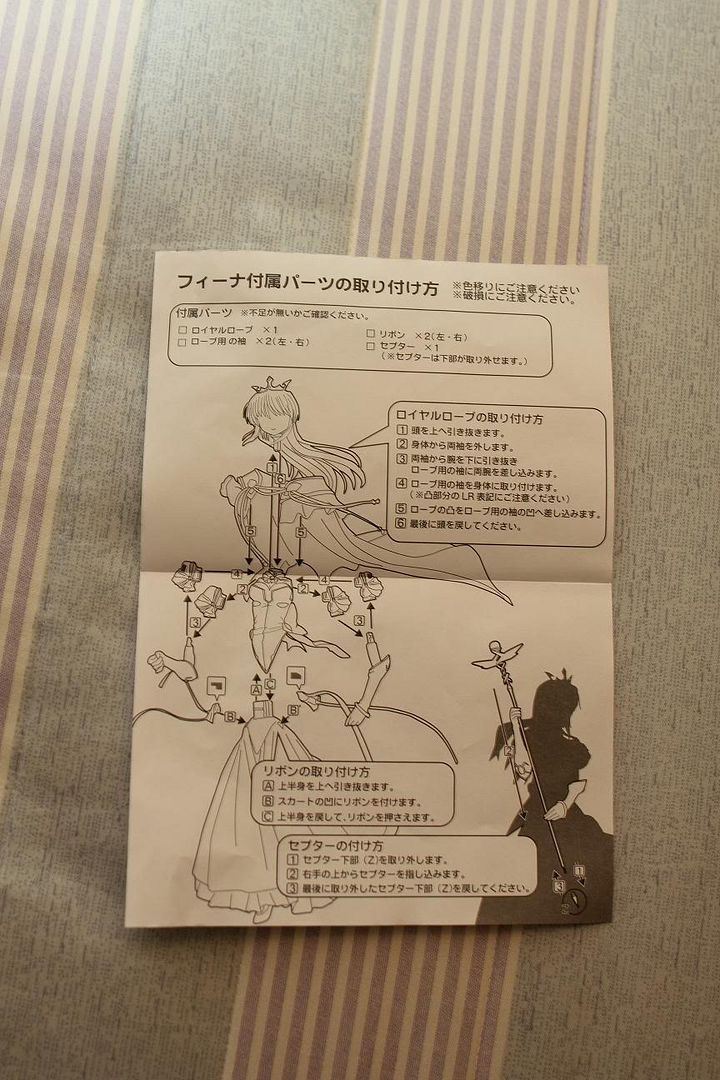 フィーナ付属パーツの取り付け方
※色移りにご注意ください
※破損にご注意ください。
付属パーツ ※不足が無いかご確認ください。
□ ロイヤルローブ ×1
□ ローブ用の袖 ×2(左・右)
□ リボン ×2(左・右)
□ セプター ×1
(※セプターは下部が取り外せます。)
ロイヤルローブの取り付け方
1 頭を上へ引き抜きます。
2 身体から両袖を外します。
3 両袖から腕を下に引き抜き
ローブ用の袖に両腕を差し込みます。
4 ローブ用の袖を身体に取り付けます。
(※凸部分のLR表記にご注意ください)
5 ローブの凸をローブ用の袖の凹へ差し込みます。
6 最後に頭を戻してください。
1
6
5
5
4
4
2
2
3
3
A
C
B
B
2
1
3
Z
リボンの取り付け方
A 上半身を上へ引き抜きます。
B スカートの凹にリボンを付けます。
C 上半身を戻して、リボンを押さえます。
セプターの付け方
1 セプター下部(Z)を取り外します。
2 右手の上からセプターを指し込みます。
3 最後に取り外したセプター下部(Z)を戻してください。